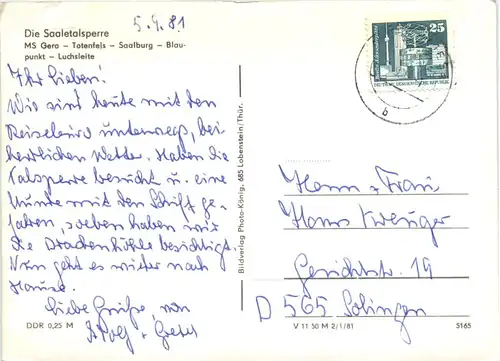 5.9.81
Die Saaletalsperre
MS Gera – Totenfels – Saalburg – Blau-
punkt – Luchsleite
Ihr Lieben!
Wir sind heute mit dem
Reisebüro unterwegs, bei
herrlichem Wetter. Haben die
Talsperre besucht u. eine
Runde mit dem Schiff ge-
fahren, soeben haben wir
die Drachenhöhle besichtigt.
Nun geht es weiter nach
Hause.
Liebe Grüße, von
DDR 0,25 M
Bildverlag Photo-König, 685 Lobenstein/Thür.
25
Herrn u. Frau
Hans
Gerichtstr. 19
D 565 Solingen
V 11 50 M 2/1/81
5165